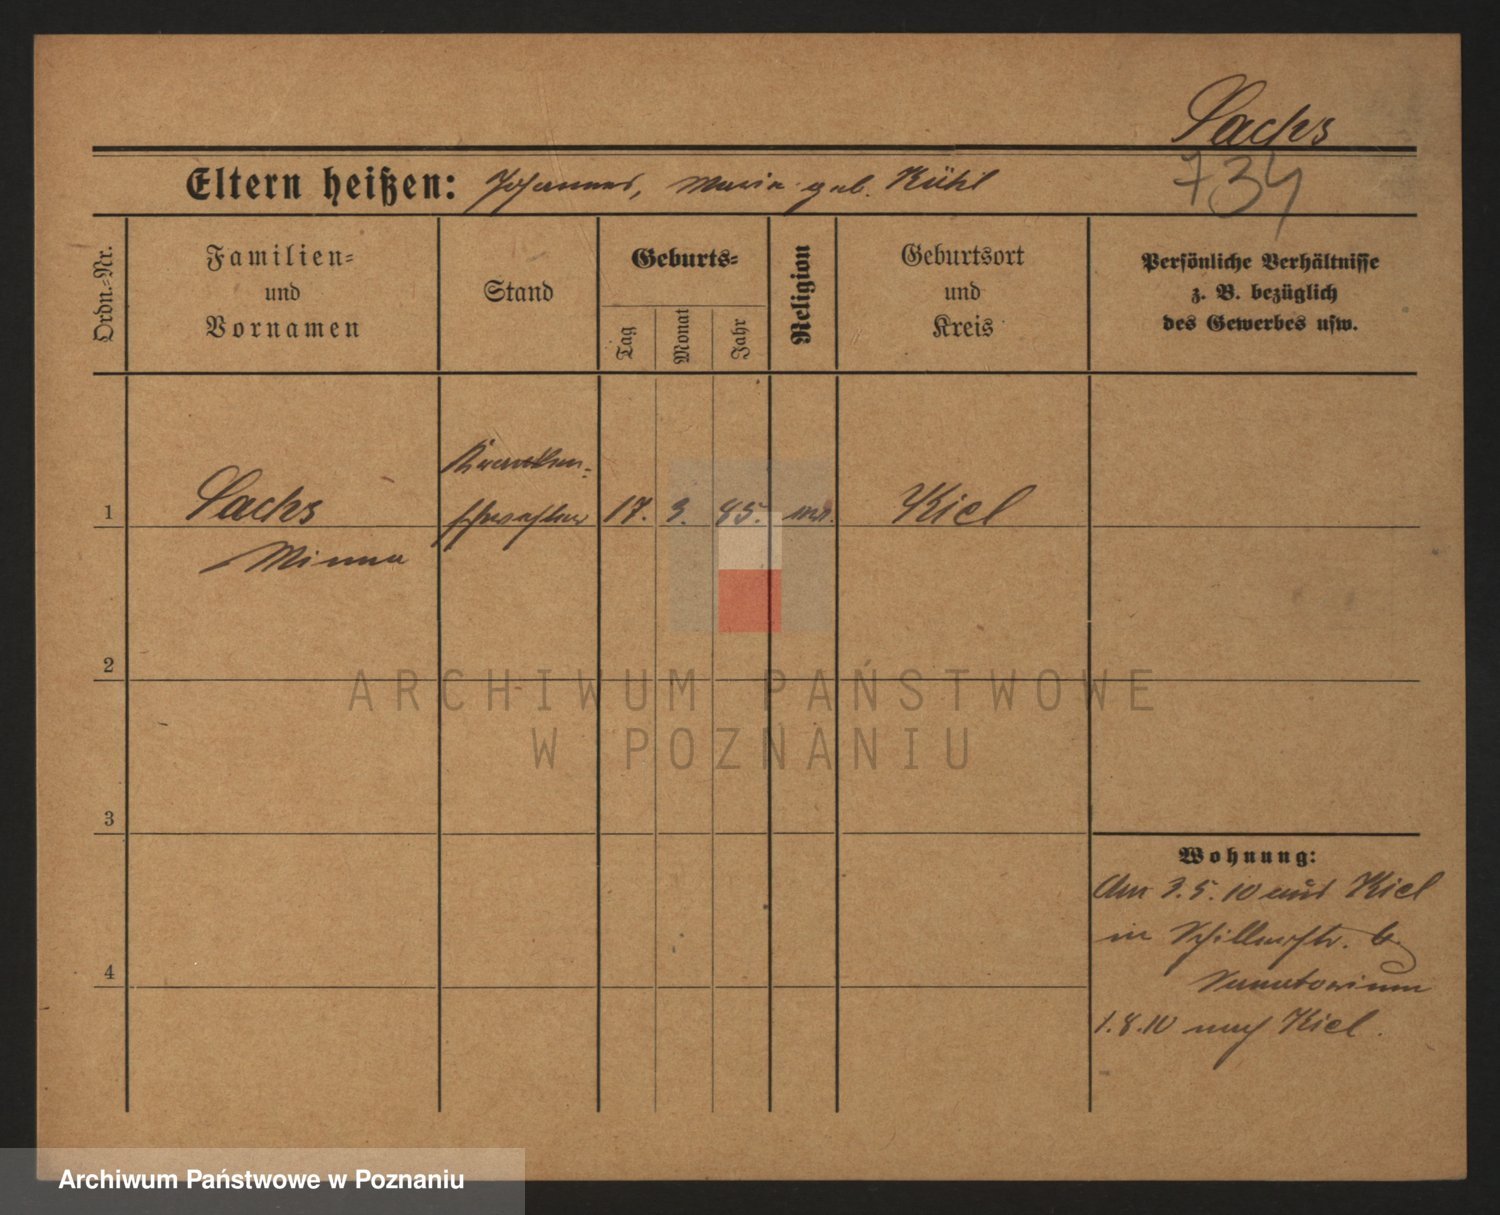 Sachs
734
Eltern heißen: Johannes, Maria geb. Kühl
Ordn.-Nr.
Familien-
und
Vornamen
Stand
Geburts-
Tag
Monat
Jahr
Religion
Geburtsort
und
Kreis
Persönliche Verhältnisse
z. B. bezüglich
des Gewerbes usw.
Kranken-
1 Sachs schwester 17. 3. 85. Kiel
Minna
2
ARCHIWUM PAŃSTWOWE
W POZNANIU
3
Wohnung:
Am 3.5.10 aus Kiel
in Schillerstr. 6
4
Sanatorium
1.8.10 nach Kiel.
Archiwum Państwowe w Poznaniu